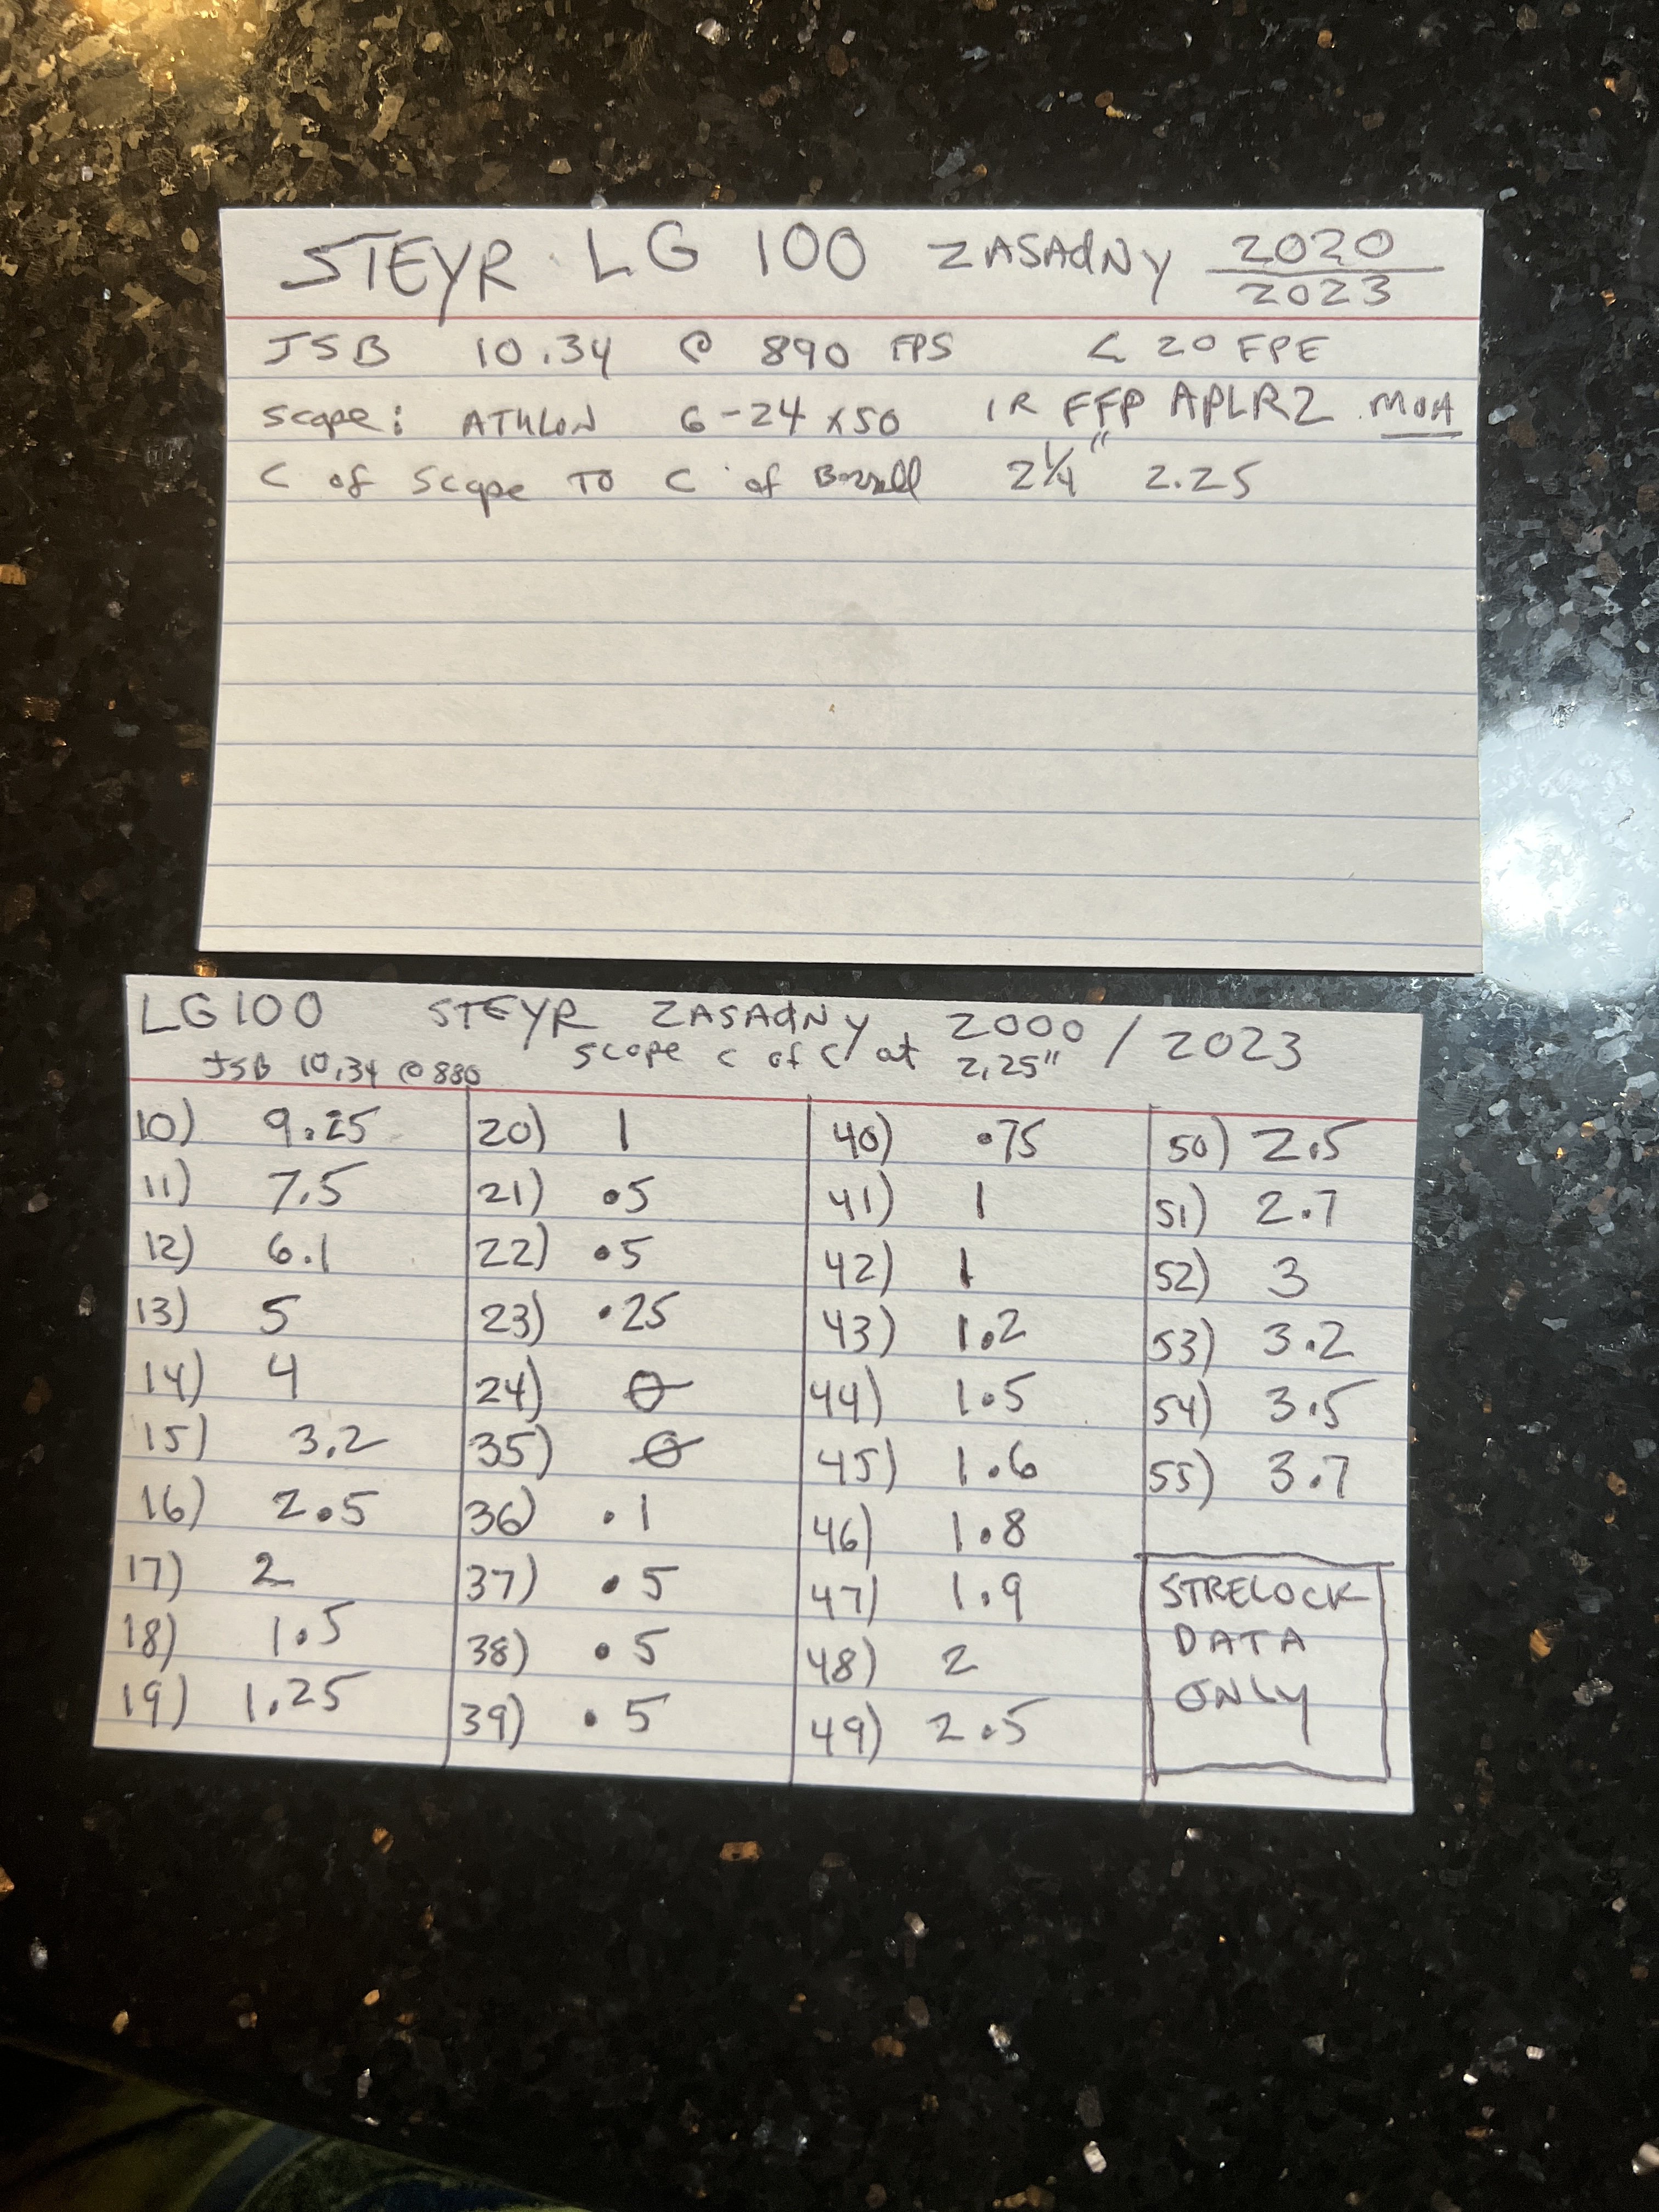 STEYR LG 100 ZASADNY 2020
2023
JSB 10.34 @ 890 FPS < 20 FPE
Scope: ATHLON 6-24 x50 IR FFP APLR2 MOA
C of Scope TO C of Barrell 2 1/4" 2.25
LG100 STEYR ZASADNY 2000 / 2023
JSB 10.34 @ 880 scope c of c at 2.25"
10) 9.25
11) 7.5
12) 6.1
13) 5
14) 4
15) 3.2
16) 2.5
17) 2
18) 1.5
19) 1.25
20) 1
21) .5
22) .5
23) .25
24) 0
35) 0
36) .1
37) .5
38) .5
39) .5
40) .75
41) 1
42) 1
43) 1.2
44) 1.5
45) 1.6
46) 1.8
47) 1.9
48) 2
49) 2.5
50) 2.5
51) 2.7
52) 3
53) 3.2
54) 3.5
55) 3.7
STRELOCK
DATA
ONLY